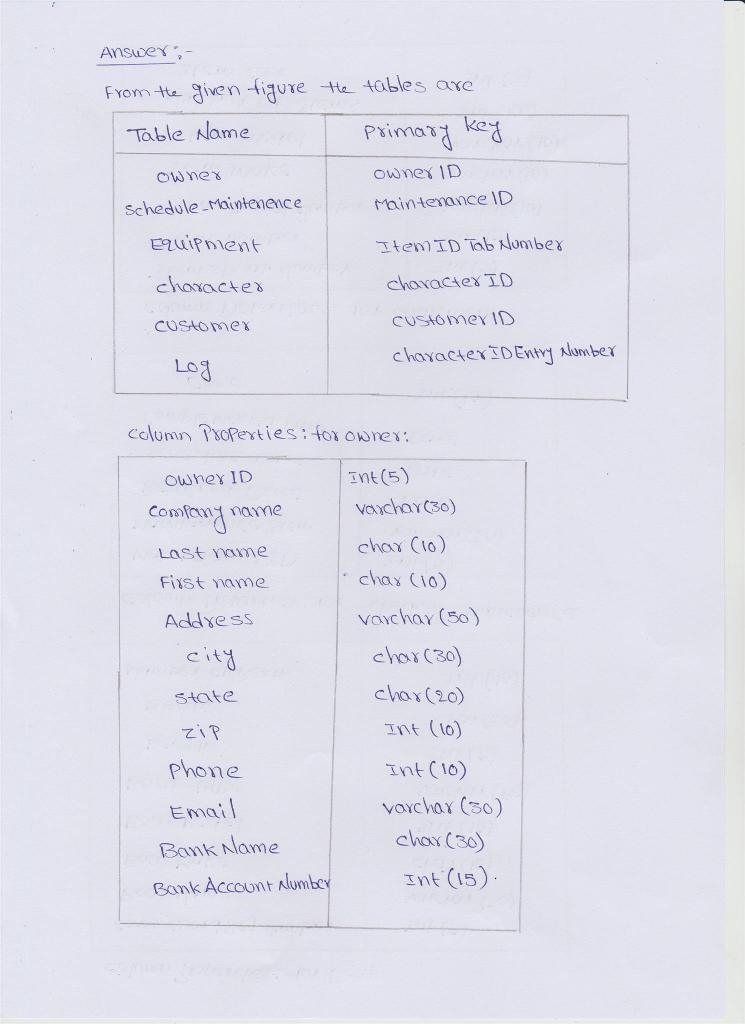 Answer:-
From the given figure the tables are
Table Name Primary Key
owner owner ID
Schedule-Maintenence Maintenance ID
Equipment Item ID Tab Number
character character ID
customer customer ID
Log character ID Entry Number
column Properties: for owner:
owner ID Int(5)
Company name varchar(30)
Last name char (10)
First name char (10)
Address varchar (50)
city char (30)
state char (20)
zip Int (10)
Phone Int (10)
Email varchar (30)
Bank Name char (30)
Bank Account Number Int (15).